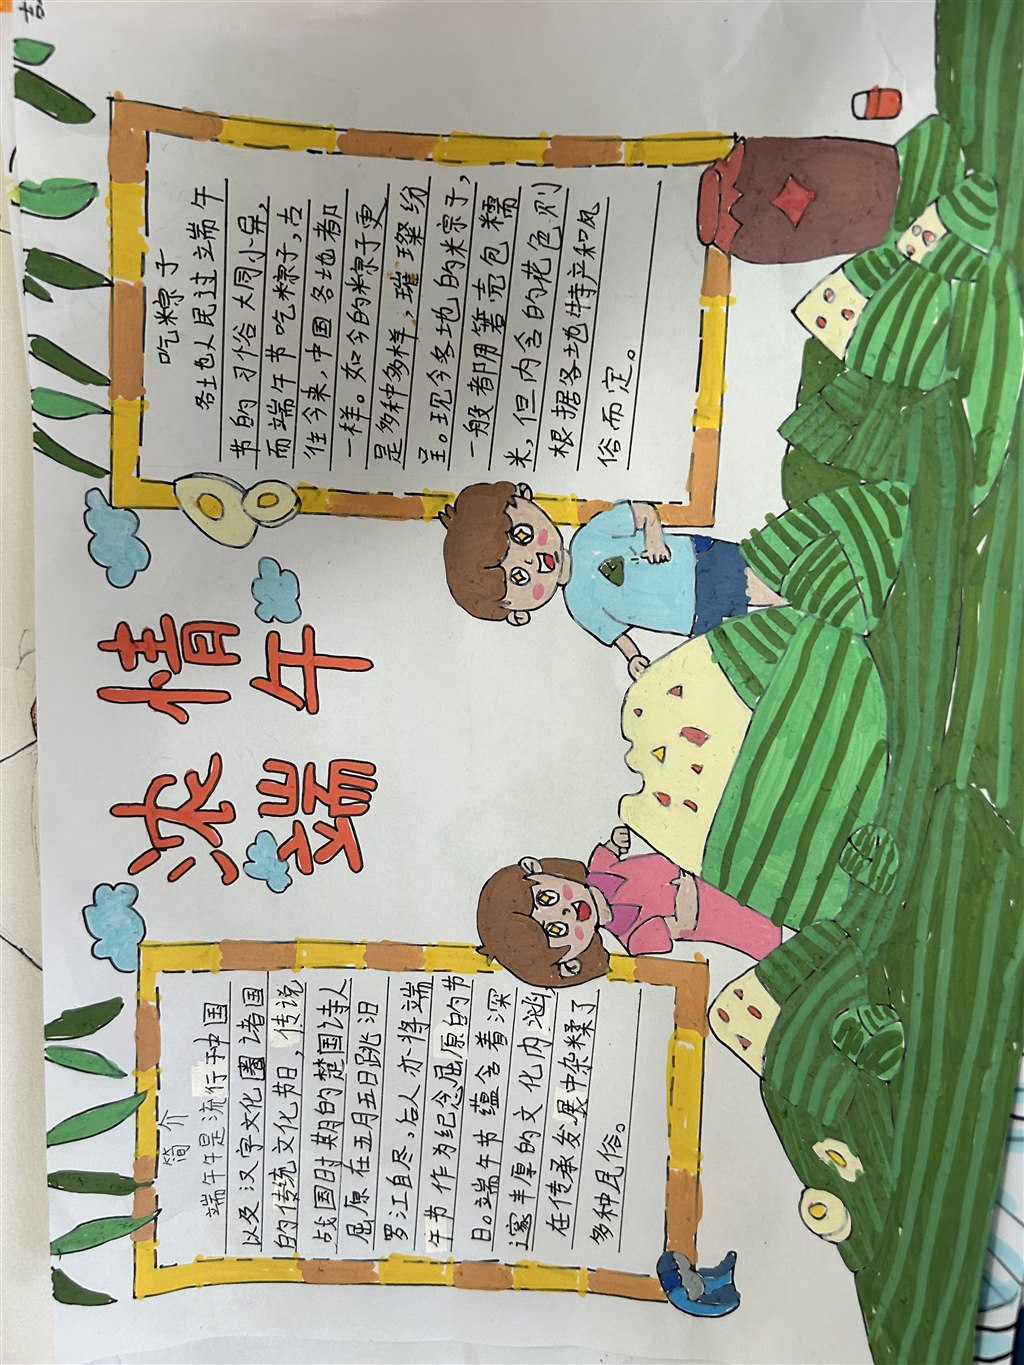 浓情
端午
简介
端午午是流行于中国
以及汉字文化圈诸国
的传统文化节日，传说
战国时期的楚国诗人
屈原在五月五日跳汨
罗江自尽，后人亦将端
午节作为纪念屈原的节
日。端午节蕴含着深
邃丰厚的文化内涵
在传承发展中杂糅了
多种民俗。
吃粽子
各土也人民过立端午
节的习俗大同小异，
而端午节吃粽子，古
往今来，中国各地都
一样。如今的粽子更
是多种多样，璀璨纷
呈。现今各地的粽子，
一般都用箬壳包糯
米，但内含的花色则
根据各地特产和风
俗而定。